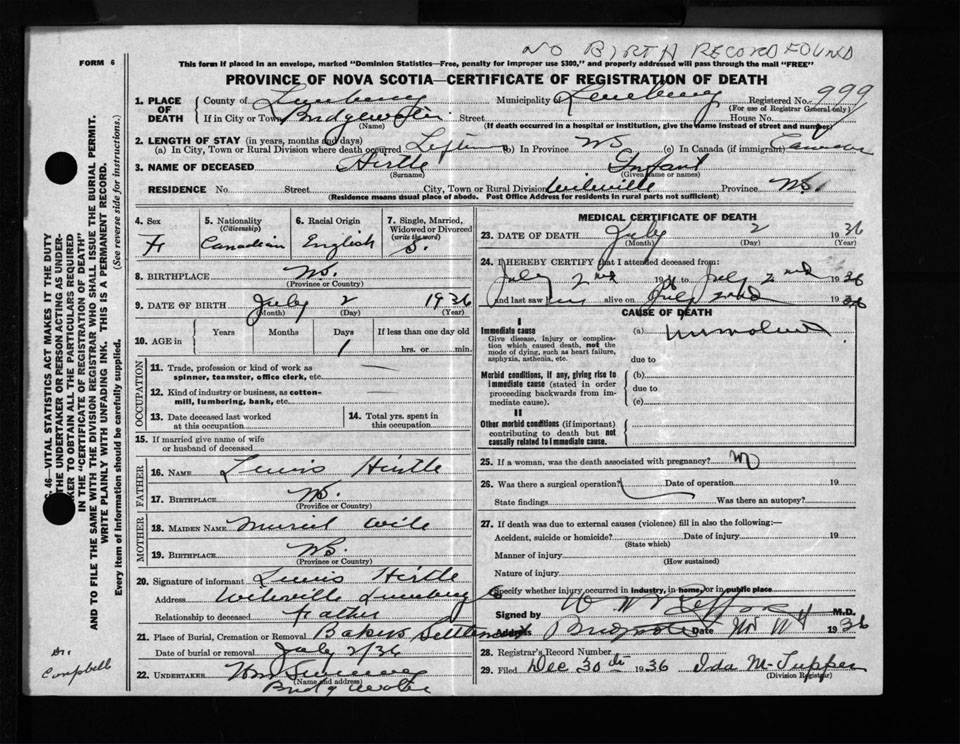 NO BIRTH RECORD FOUND
FORM 6
This form if placed in an envelope, marked "Dominion Statistics—Free, penalty for improper use $300," and properly addressed will pass through the mail "FREE"
PROVINCE OF NOVA SCOTIA—CERTIFICATE OF REGISTRATION OF DEATH
1. PLACE OF DEATH
County of Lunenburg Municipality of Lunenburg Registered No. 999
(For use of Registrar General only)
If in City or Town Bridgewater Street House No.
(Name) (If death occurred in a hospital or institution, give the name instead of street and number)
2. LENGTH OF STAY (in years, months and days)
(a) In City, Town or Rural Division where death occurred Lifetime (b) In Province NS (c) In Canada (if immigrant)
3. NAME OF DECEASED Hirtle Infant
(Surname) (Given name or names)
RESIDENCE No. Street City, Town or Rural Division Wileville Province NS.
(Residence means usual place of abode. Post Office Address for residents in rural parts not sufficient)
4. Sex F
5. Nationality (Citizenship) Canadian
6. Racial Origin English
7. Single, Married, Widowed or Divorced (write the word) S.
8. BIRTHPLACE NS.
(Province or Country)
9. DATE OF BIRTH July 2 1936
(Month) (Day) (Year)
10. AGE in Years Months Days If less than one day old
1 hrs. or min.
OCCUPATION
11. Trade, profession or kind of work as spinner, teamster, office clerk, etc. —
12. Kind of industry or business, as cotton-mill, lumbering, bank, etc. —
13. Date deceased last worked at this occupation
14. Total yrs. spent in this occupation
15. If married give name of wife or husband of deceased
FATHER
16. NAME Lewis Hirtle
17. BIRTHPLACE NS.
(Province or Country)
MOTHER
18. MAIDEN NAME Muriel Wile
19. BIRTHPLACE NS.
(Province or Country)
20. Signature of informant Lewis Hirtle
Address Wileville Lunenburg Co
Relationship to deceased Father
21. Place of Burial, Cremation or Removal Bakers Settlement
Date of burial or removal July 2/36
22. UNDERTAKER Wm
(Name and address)
Bridgewater
MEDICAL CERTIFICATE OF DEATH
23. DATE OF DEATH July 2 1936
(Month) (Day) (Year)
24. I HEREBY CERTIFY that I attended deceased from:
July 2nd 1936 to July 2nd 1936
and last saw her alive on July 2nd 1936
CAUSE OF DEATH
I
Immediate cause
Give disease, injury or complication which caused death, not the mode of dying, such as heart failure, asphyxia, asthenia, etc.
(a)
due to
Morbid conditions, if any, giving rise to immediate cause (stated in order proceeding backwards from immediate cause).
(b)
due to
(c)
II
Other morbid conditions (if important) contributing to death but not causally related to immediate cause.
25. If a woman, was the death associated with pregnancy? No
26. Was there a surgical operation? Date of operation 19
State findings Was there an autopsy?
27. If death was due to external causes (violence) fill in also the following:—
Accident, suicide or homicide? Date of injury 19
(State which)
Manner of injury
(How sustained)
Nature of injury
Specify whether injury occurred in industry, in home, or in public place
Signed by M.D.
Address Bridgewater Date 1936
28. Registrar's Record Number
29. Filed Dec 30th 1936 Ida M. Tupper
(Division Registrar)
C. 46—VITAL STATISTICS ACT MAKES IT THE DUTY
THE UNDERTAKER OR PERSON ACTING AS UNDER-
KER TO OBTAIN ALL THE PARTICULARS REQUIRED
IN THE "CERTIFICATE OF REGISTRATION OF DEATH"
AND TO FILE THE SAME WITH THE DIVISION REGISTRAR WHO SHALL ISSUE THE BURIAL PERMIT.
WRITE PLAINLY WITH UNFADING INK. THIS IS A PERMANENT RECORD.
Every item of Information should be carefully supplied. (See reverse side for instructions.)
Dr.
Campbell